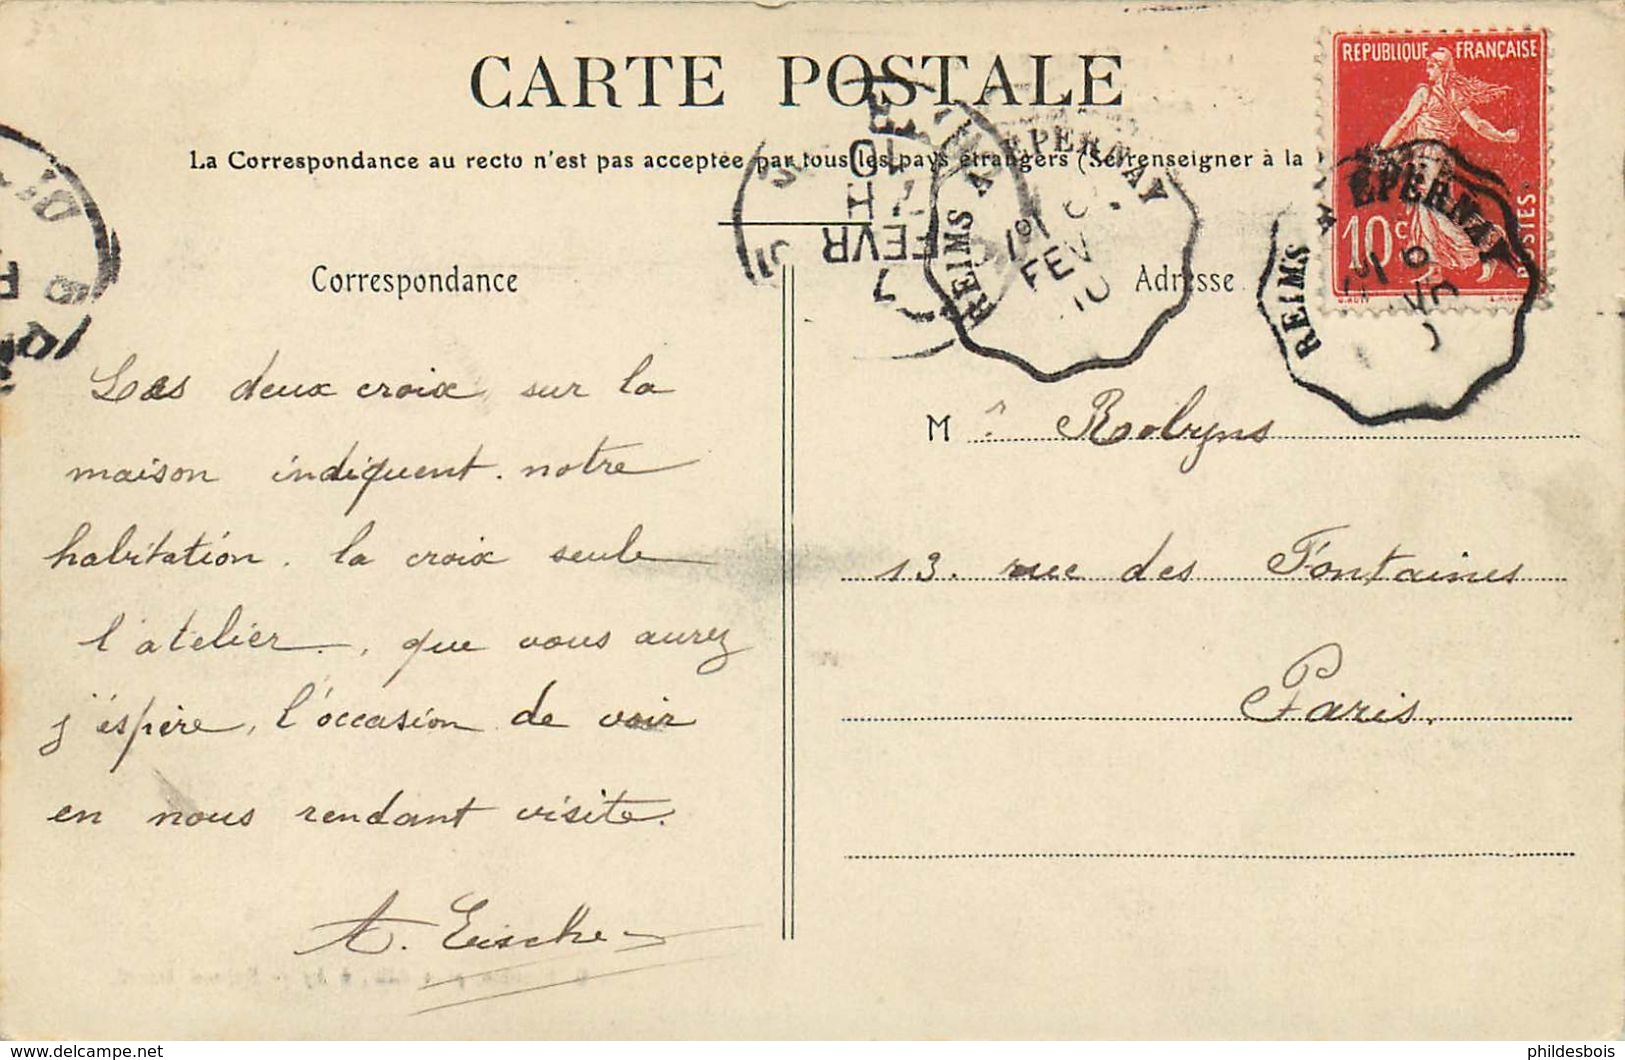 CARTE POSTALE
La Correspondance au recto n'est pas acceptée par tous les pays étrangers (Se renseigner à la
REPUBLIQUE FRANÇAISE
10c
POSTES
REIMS A EPERNAY
FEVR
10
REIMS A EPERNAY
7 FEVR
10
Correspondance
Adresse
Les deux croix sur la
maison indiquent notre
habitation. la croix seule
l'atelier, que vous aurez
j'éspère, l'occasion de voir
en nous rendant visite.
M r Robyns
13. rue des Fontaines
Paris.
phildesbois